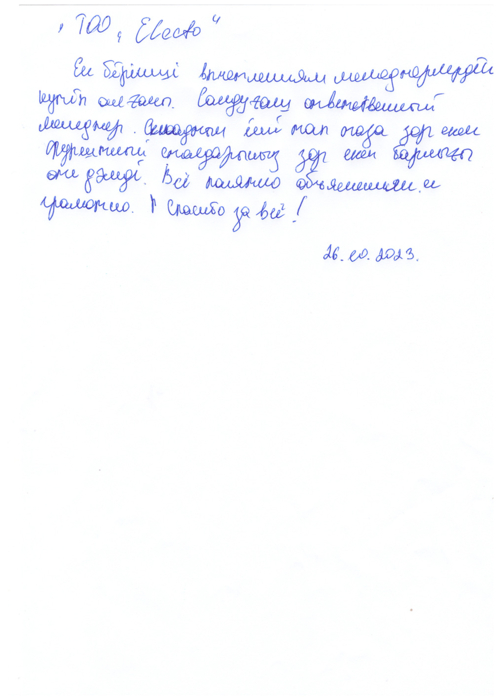 "ТОО "Electo"
Ең бірінші впечатлениям менеджерлердің
күтіп алғаны. Сандуғаш ответственный
менеджер. Складтың іші тап таза зор екен
Фуршетный столдарыңыз зор екен бариығы
оте дәмді. Всё понятно объяснили и
грамотно. Спасибо за всё!
26.10.2023.